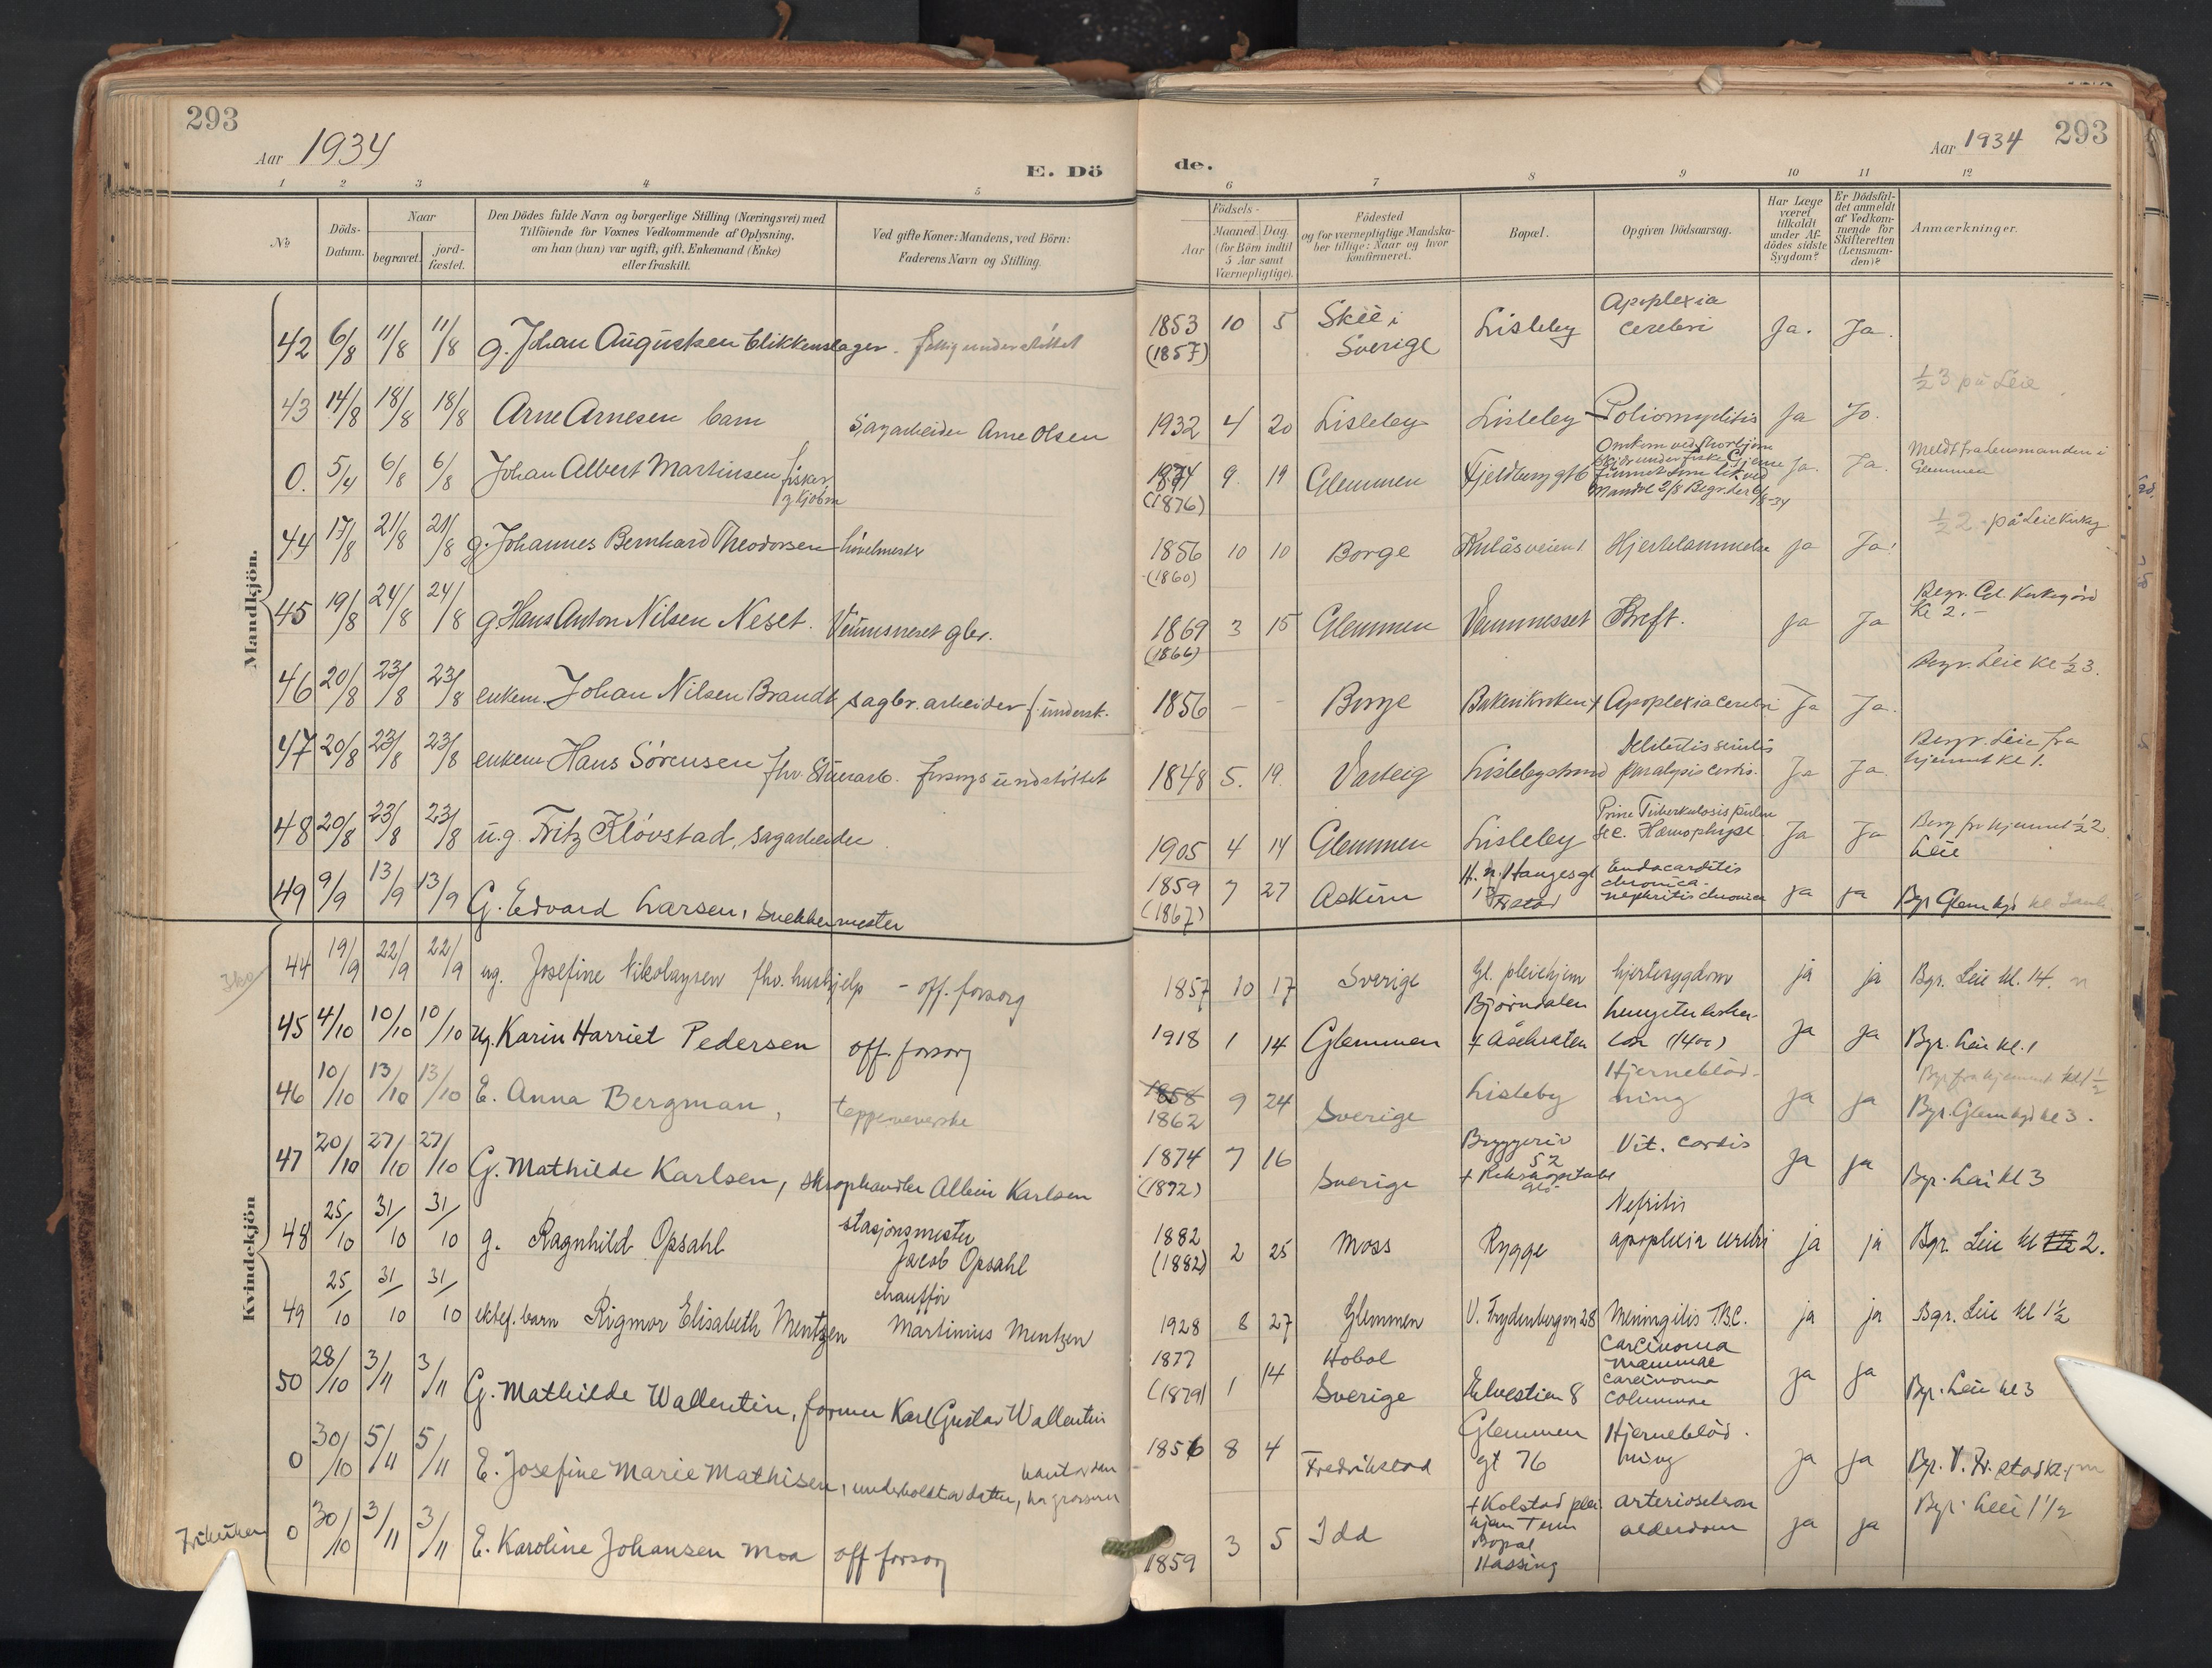 293
Aar 1934
E. Dö
1 2 3 4 5
No
Döds-Datum.
Naar
begravet.
jord-fæstet.
Den Dödes fulde Navn og borgerlige Stilling (Næringsvei) med
Tilföiende for Voxnes Vedkommende af Oplysning,
om han (hun) var ugift, gift, Enkemand (Enke)
eller fraskilt.
Ved gifte Koner: Mandens, ved Börn:
Faderens Navn og Stilling.
Mandkjön.
42 6/8 11/8 11/8 g. Johan Augustsen blikkenslager. fattigunderstöttet
43 14/8 18/8 18/8 Arne Arnesen barn Sagarbeider Arne Olsen
0. 5/4 6/8 6/8 Johan Albert Martinsen fisker
44 17/8 21/8 21/8 g. Johannes Bernhard Theodorsen hövelmester
45 19/8 24/8 24/8 g. Hans Anton Nilsen Neset. Veumsneset gbr.
46 20/8 23/8 23/8 enkem. Johan Nilsen Brandt sagbr. arbeider f. underst.
47 20/8 23/8 23/8 enkem Hans Sörensen fhv. Stuerarb. forsorgsundstöttet
48 20/8 23/8 23/8 u.g. Fritz Klövstad, sagarbeider
49 9/9 13/9 13/9 G. Edvard Larsen, snekkermester
Kvindekjön
44 19/9 22/9 22/9 ug. Josefine Nikolaysen fhv. hushjelp - off. forsorg
45 4/10 10/10 10/10 Ug. Karin Harriet Pedersen off. forsorg
46 10/10 13/10 13/10 E. Anna Bergman, teppeveverske
47 20/10 27/10 27/10 G. Mathilde Karlsen, skraphandler Albin Karlsen
48 25/10 31/10 31/10 g. Ragnhild Opsahl stasjonsmester
Jacob Opsahl
49 25/10 31/10 31/10 ektef. barn Rigmor Elisabeth Mentzen chaufför
Martinius Mentzen
50 28/10 3/11 3/11 G. Mathilde Wallentin, former Karl Gustav Wallentin
0 30/10 5/11 5/11 E. Josefine Marie Mathisen, underholdt av datter,
0 30/10 3/11 3/11 E. Karoline Johansen Moa off forsorg
293
Aar 1934
de.
6 7 8 9 10 11 12
Födsels-
Aar
Maaned. Dag.
(for Börn indtil
5 Aar samt
Værnepligtige).
Födested
og for værnepligtige Mandska-
ber tillige: Naar og hvor
konfirmeret.
Bopæl.
Opgiven Dödsaarsag.
Har Læge
været
tilkaldt
under Af-
dödes sidste
Sygdom?
Er Dödsfal-
det anmeldt
af Vedkom-
mende for
Skifteretten
(Lensman-
den)?
Anmærkninger.
1853 (1857) 10 5 Skee i Sverige Lisleby Apoplexia cerebri Ja. Ja.
1/2 3 på Leie
1932 4 20 Lisleby Lisleby Poliomyelitis Ja Jo.
1874 (1876) 9. 19 Glemmen Fjeldberggt 6 Ja. Ja. Meldt fra Lensmanden i Glemmen
1/2 2 på Leie Kirkeg
1856 (1860) 10 10 Borge Hjertelammelse ja Ja!
1869 (1866) 3 15 Glemmen Veumnesset Kreft. ja Ja Begr. Gl. Kirkegård Kl 2.-
1856 - - Borge Apoplexia cerebri Ja Ja. Begr. Leie Kl 1/2 3.
1848 5. 19. Varteig Lislebystrand Debilitas senilis paralysis cordis. Ja Ja. Begr. Leie fra hjemmet kl 1.
1905 4 14 Glemmen Lisleby Prim Tuberkulosis pulm sec. Hæmophtyse. Ja Ja Begr fra hjemmet 1/2 2 Leie
1859 (1867) 7 27 Askim H. N. Haugesgt 13 Fr.stad Endocarditis chronica - nephritis chronica ja ja Bgr Glem kgd kl
1857 10 17 Sverige Gl. pleiehjem hjertesygdom ja ja Bgr. Leie kl. 14.
1918 1 14 Glemmen Björndalen + Åsebråten lungetuberkulose (1400) ja ja Bgr. Leie kl. 1
Bgr fra hjemmet kl 1 1/2
1858 1862 9 24 Sverige Lisleby Hjerneblödning ja ja Bgr. Glem kgd kl 3.
1874 (1872) 7 16 Sverige Bryggeriv 52 Vit. cordis ja ja Bgr. Leie kl 3
1882 (1882) 2 25 Moss Rygge Nefritis apoplexia cerebri ja ja Bgr. Leie kl 2.
1928 8 27 Glemmen V. Frydenbergvn 28 Meningitis T.B.C. ja ja Bgr. Leie kl 1 1/2
1877 (1879) 1 14 Hobol Sverige Elvestien 8 Carcinoma mammae carcinoma columnae ja ja Bgr. Leie kl 3
1856 8 4 Fredrikstad Glemmen gt 76 Hjerneblödning ja ja Bgr. V. Fr. stad kl
1859 3 5 Idd + Kolstad pleiehjem Bopæl Hassing arteriosclerose alderdom ja ja Bgr. Leie 1 1/2